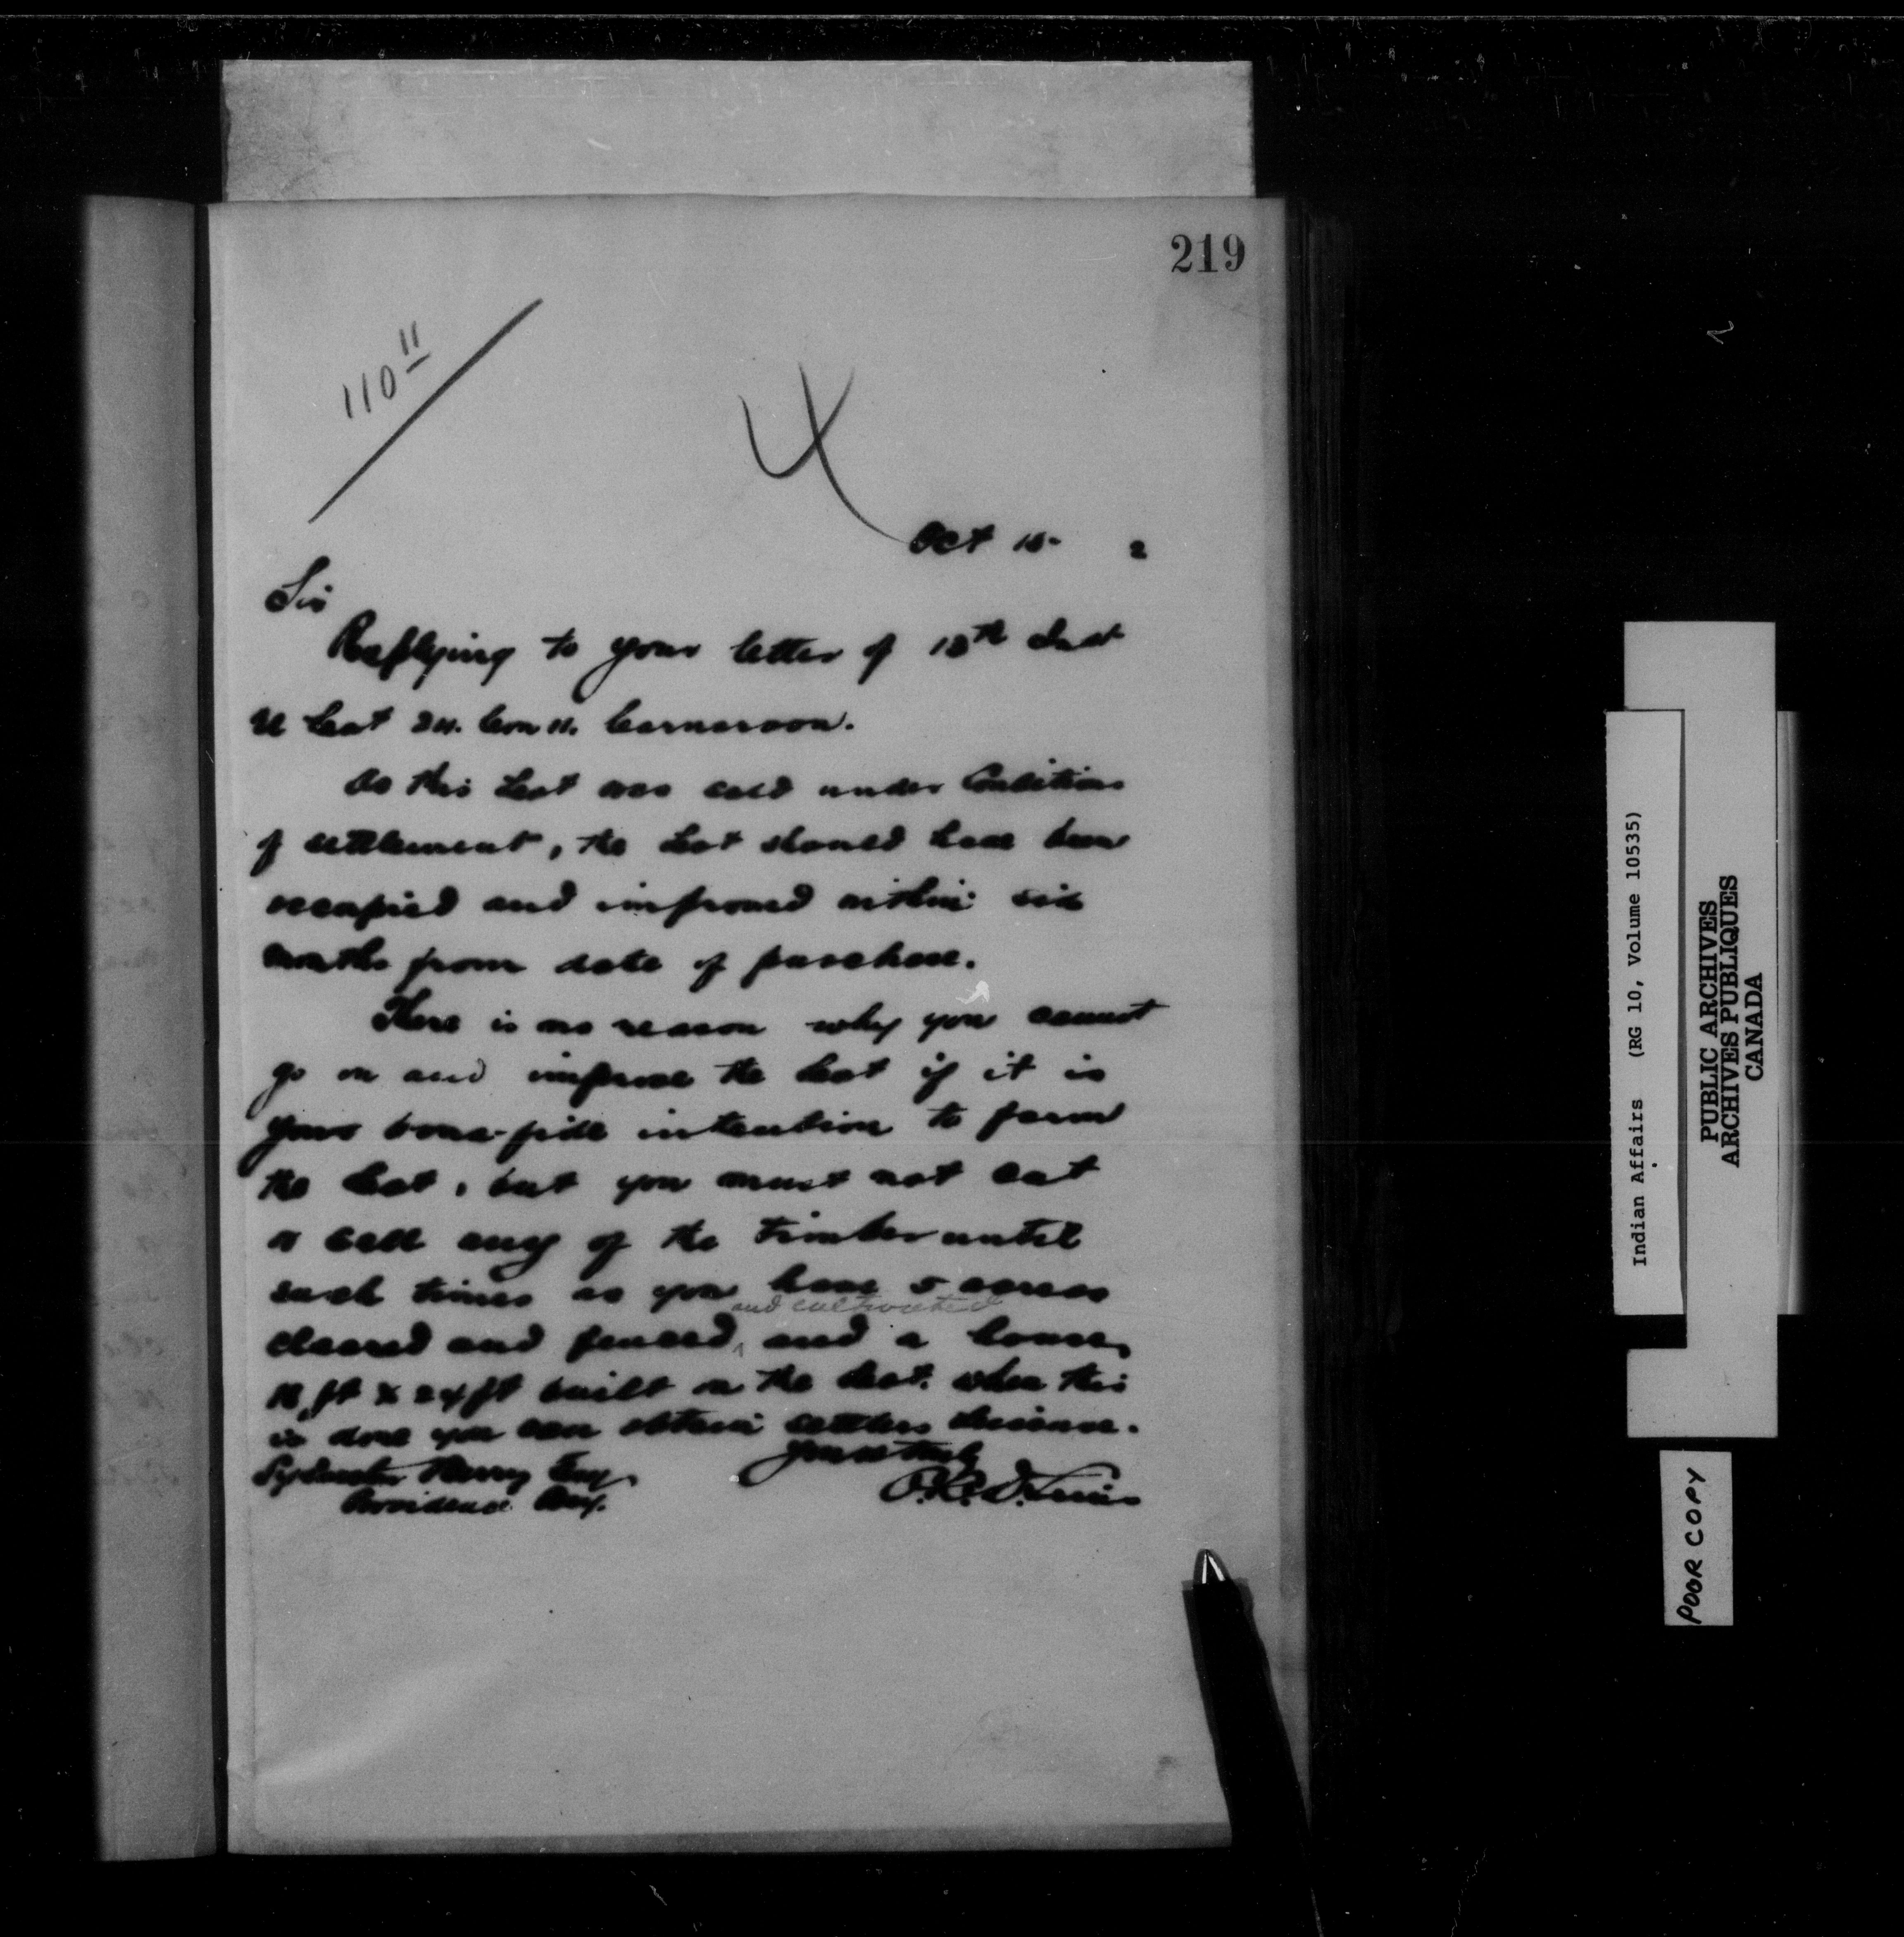 219
110 11
Oct 15- 2
Sir
Replying to your letter of 13th Inst
re Lot 24. Con 11. Carnarvon.
As this Lot was sold under Conditions
of settlement, the Lot should have been
occupied and improved within six
months from date of purchase.
There is no reason why you cannot
go on and improve the Lot if it is
your bona-fide intention to farm
the Lot, but you must not cut
or sell any of the timber until
such times as you have 5 acres
and cultivated
cleared and fenced, and a house
18 ft x 24 ft built on the Lot. When this
is done you can obtain settlers license.
Yours truly
Sylvester Esq
Providence Bay.
Indian Affairs (RG 10, Volume 10535)
PUBLIC ARCHIVES
ARCHIVES PUBLIQUES
CANADA
POOR COPY